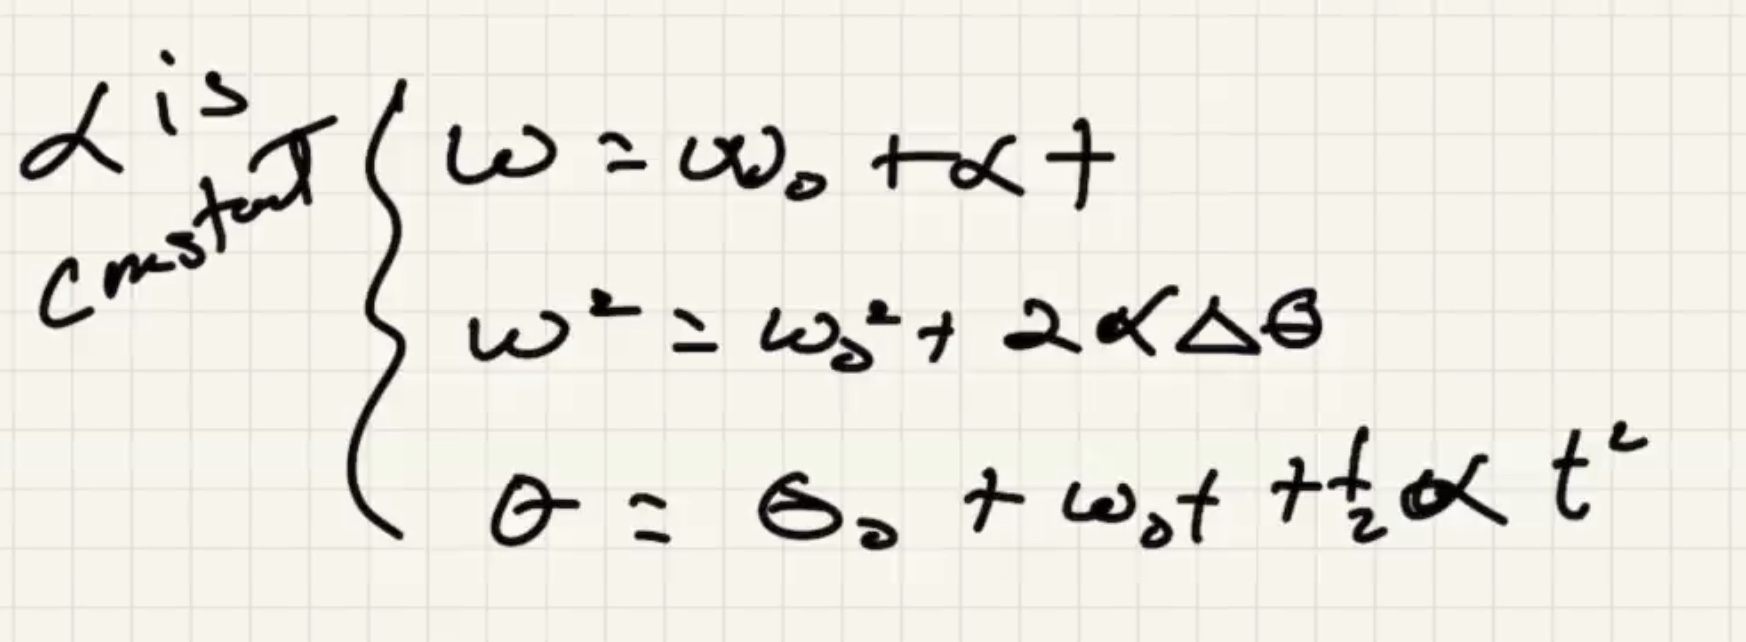 α is
constant
ω = ω₀ + α t
ω² = ω₀² + 2 α Δθ
θ = θ₀ + ω₀t + ½ α t²